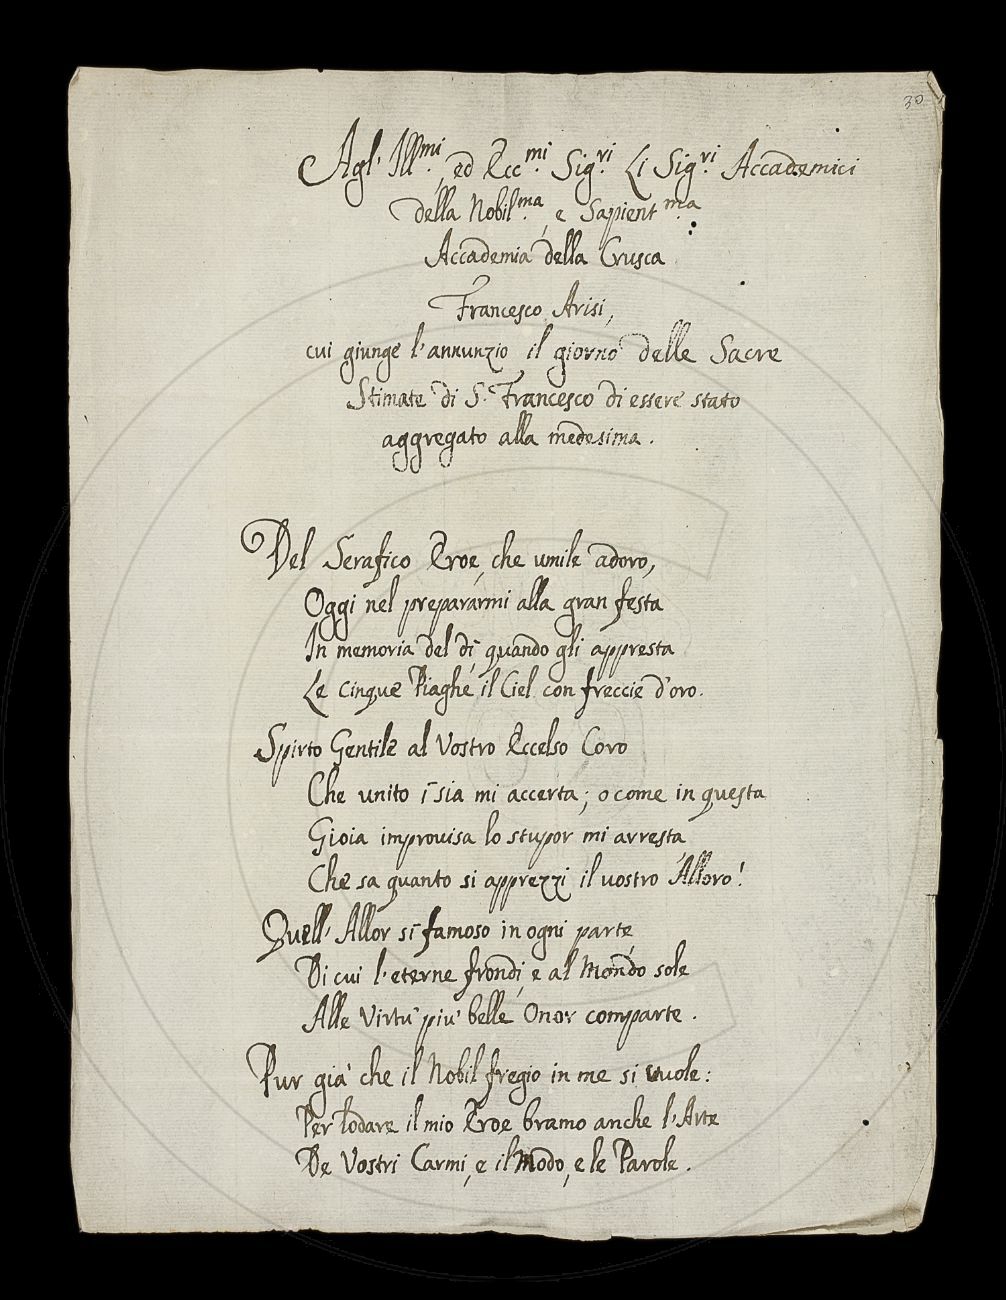 30
Agl' Ill.mi, ed Ecc.mi Sig.ri Li Sig.ri Accademici
della Nobil.ma, e Sapient.ma
Accademia della Crusca
Francesco Arisi,
cui giunge l'annunzio il giorno delle Sacre
Stimate di S. Francesco di essere stato
aggregato alla medesima.
Del Serafico Eroe, che umile adoro,
Oggi nel prepararmi alla gran festa
In memoria del dì, quando gli appresta
Le cinque Piaghe il Ciel con freccie d'oro.
Spirto Gentile al Vostro Eccelso Coro
Che unito i' sia mi accerta; o come in questa
Gioia improuisa lo stupor mi arresta
Che sa quanto si apprezzi il uostro Alloro!
Quell' Allor sì famoso in ogni parte,
Di cui l'eterne frondi, e al Mondo sole
Alle Virtù più belle Onor comparte.
Pur già che il Nobil fregio in me si uuole:
Per lodare il mio Eroe bramo anche l'Arte
De Vostri Carmi, e il Modo, e le Parole.